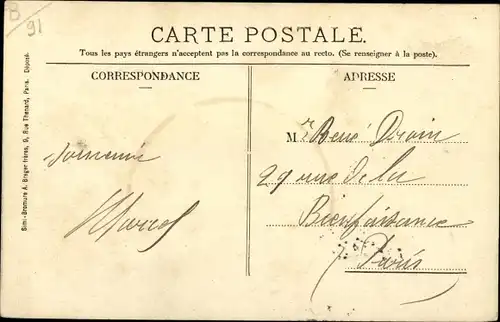 B
91
CARTE POSTALE.
Tous les pays étrangers n'acceptent pas la correspondance au recto. (Se renseigner à la poste).
CORRESPONDANCE
ADRESSE
Simi-Bromure A. Breger frères, 9, Rue Thenard, Paris. Déposé.
Souvenir
Marcel
Mr René
29 rue de la
Bienfaisance
Paris